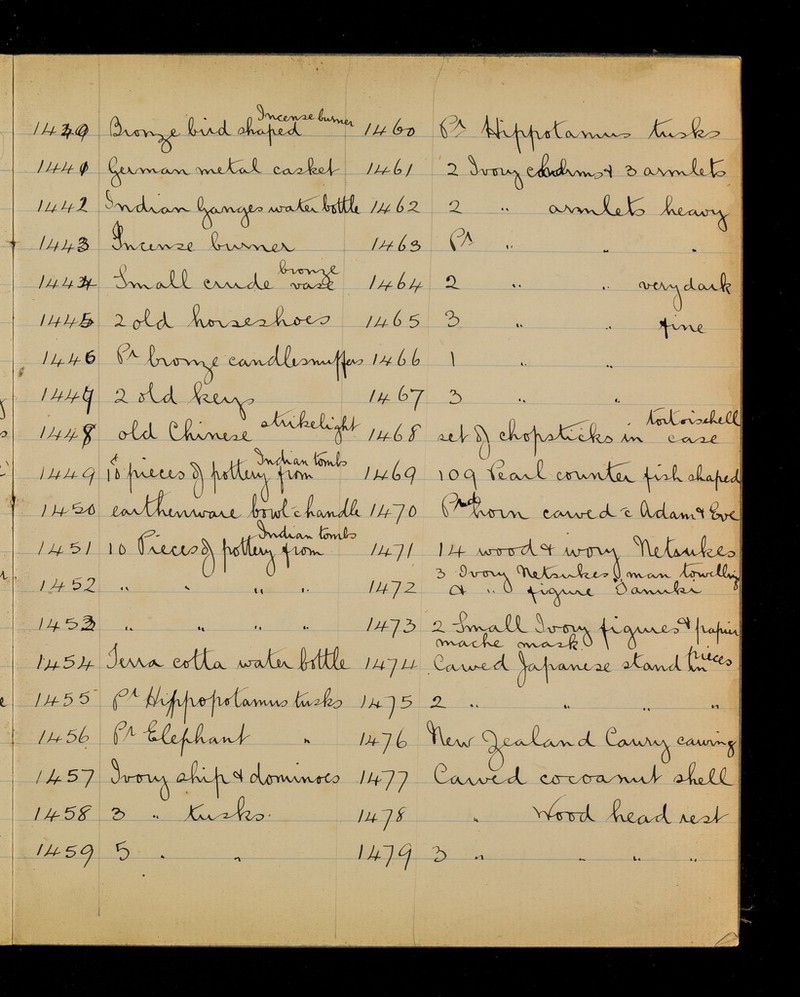 1439 Bronze bird shaped Incense burner
1440 German metal casket
1442 Indian Ganges water bottle
1443 Incense burner
1444 Small crude bronze vase
1445 2 old horseshoes
1446 Pr bronze candlesnuffers
1447 2 old keys
1448 old Chinese strikelight
1449 10 pieces of pottery from Indian tombs
1450 earthenware bowl c handle
1451 10 Pieces of pottery from Indian tombs
1452 " " " "
1453 " " " "
1454 Terra cotta water bottle
1455 Pr Hippopotamus tusks
1456 Pr Elephant "
1457 Ivory ship & dominoes
1458 3 " tusks
1459 5 " "
1460 Pr Hippotamus tusks
1461 2 Ivory & 3 armlets
1462 2 " armlets heavy
1463 Pr " " "
1464 2 " " very dark
1465 3 " " fine
1466 1 " "
1467 3 " "
1468 set of chopsticks in tortoisshell case
1469 109 Pearl counter fish shaped
1470 Pr horn carved c Adam & Eve
1471 14 wood & ivory Netsukes
1472 3 Ivory Netsukes, man towelling
& " figure
1473 2 Small Ivory figures & papier
mache mask
1474 Carved Japanese stand in pieces
1475 2 " " " "
1476 New Zealand Caury carving
1477 Carved cocoanut shell
1478 " Wood head rest
1479 3 " " " "